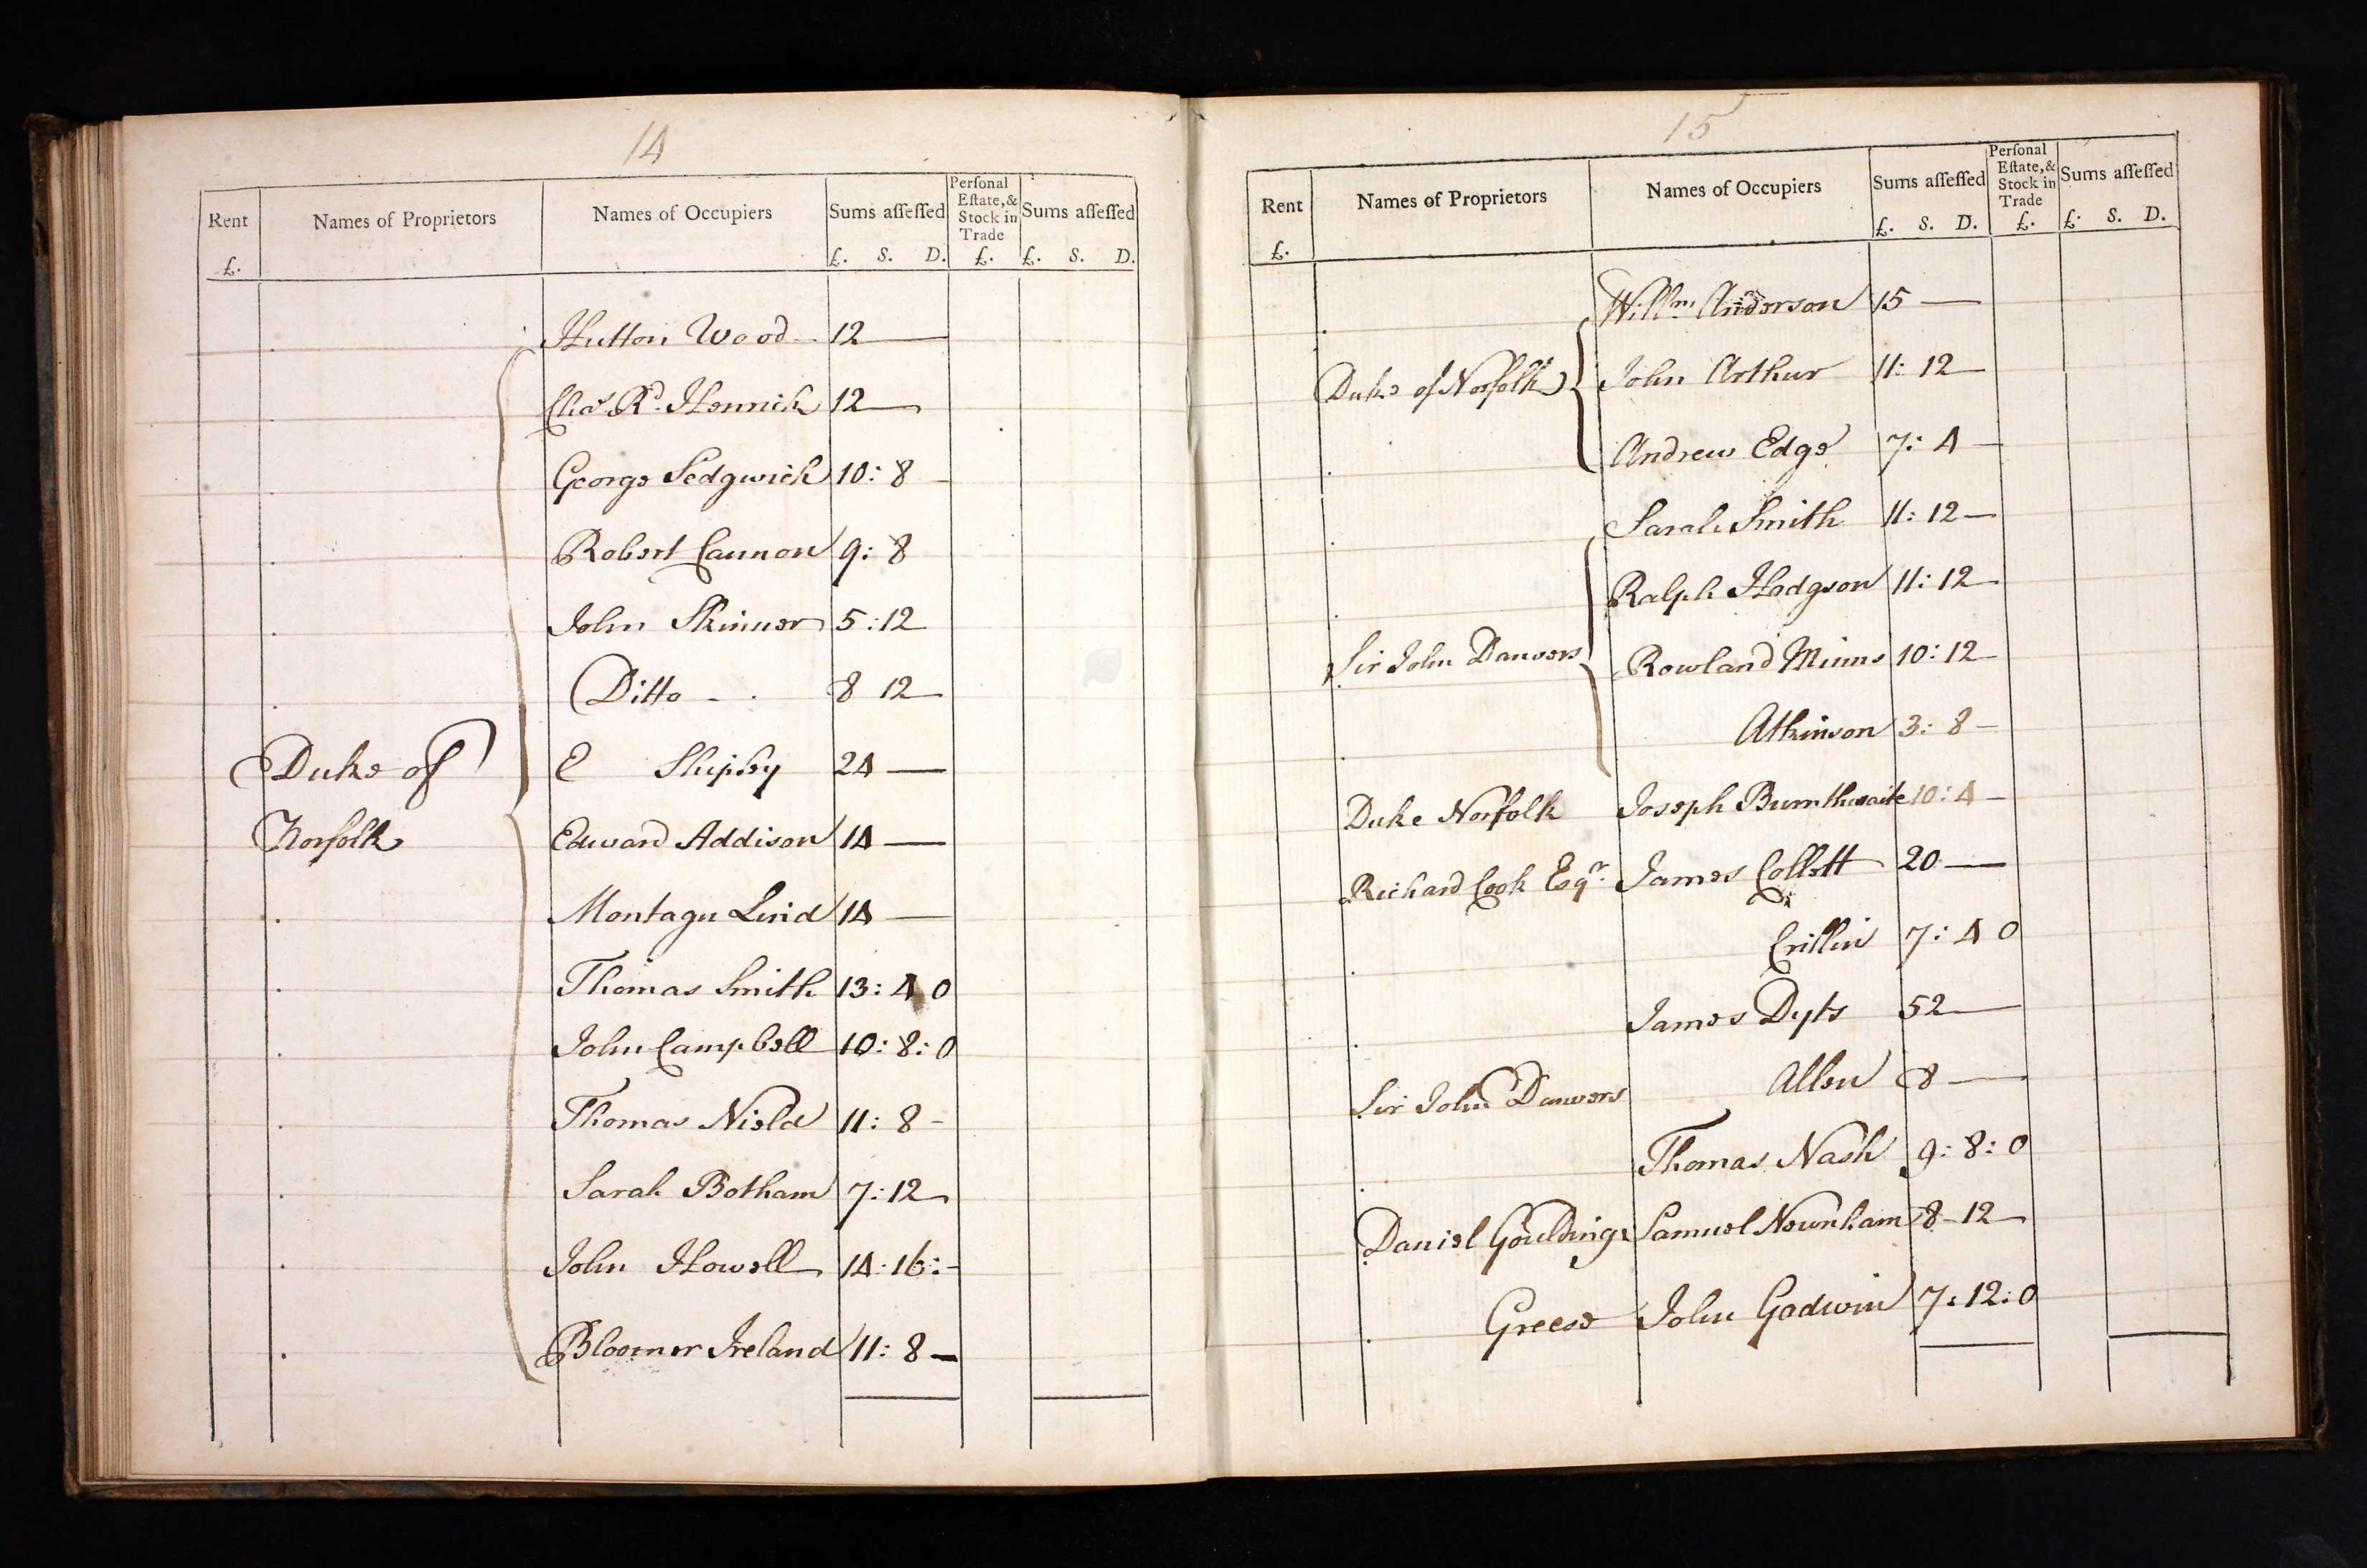 14
Rent Names of Proprietors Names of Occupiers Sums assessed Personal Estate, & Stock in Trade Sums assessed
£. £. S. D. £. £. S. D.
Hutton Wood 12 —
Chas. Rd. Hennick 12 —
George Sedgwick 10: 8 –
Robert Cannon 9: 8
John Skinner 5: 12
Ditto - . 8 12
E Shipley 24 —
Duke of
Edward Addison 14 —
Norfolk
Montagu Lind 14 —
Thomas Smith 13: 4 0
John Campbell 10: 8: 0
Thomas Nield 11: 8 -
Sarah Botham 7: 12
John Howell 14: 16: -
Bloomer Ireland 11: 8 —
15
Rent Names of Proprietors Names of Occupiers Sums assessed Personal Estate, & Stock in Trade Sums assessed
£. £. S. D. £. £. S. D.
Willm Anderson 15 —
Duke of Norfolk John Arthur 11: 12
Andrew Edge 7: 4 –
Sarah Smith 11: 12 –
Ralph Hodgson 11: 12
Sir John Danvers Rowland Mimms 10: 12
Atkinson 3: 8 –
Duke Norfolk Joseph Burnthwaite 10: 4 –
Richard Cook Esqr. James Collett 20 —
Crillin 7: 4 0
James Dyts 52 —
Sir John Danvers Allen 8 —
Thomas Nash 9: 8: 0
Daniel Goulding Samuel Newnham 8 – 12
Greese John Godwin 7: 12: 0